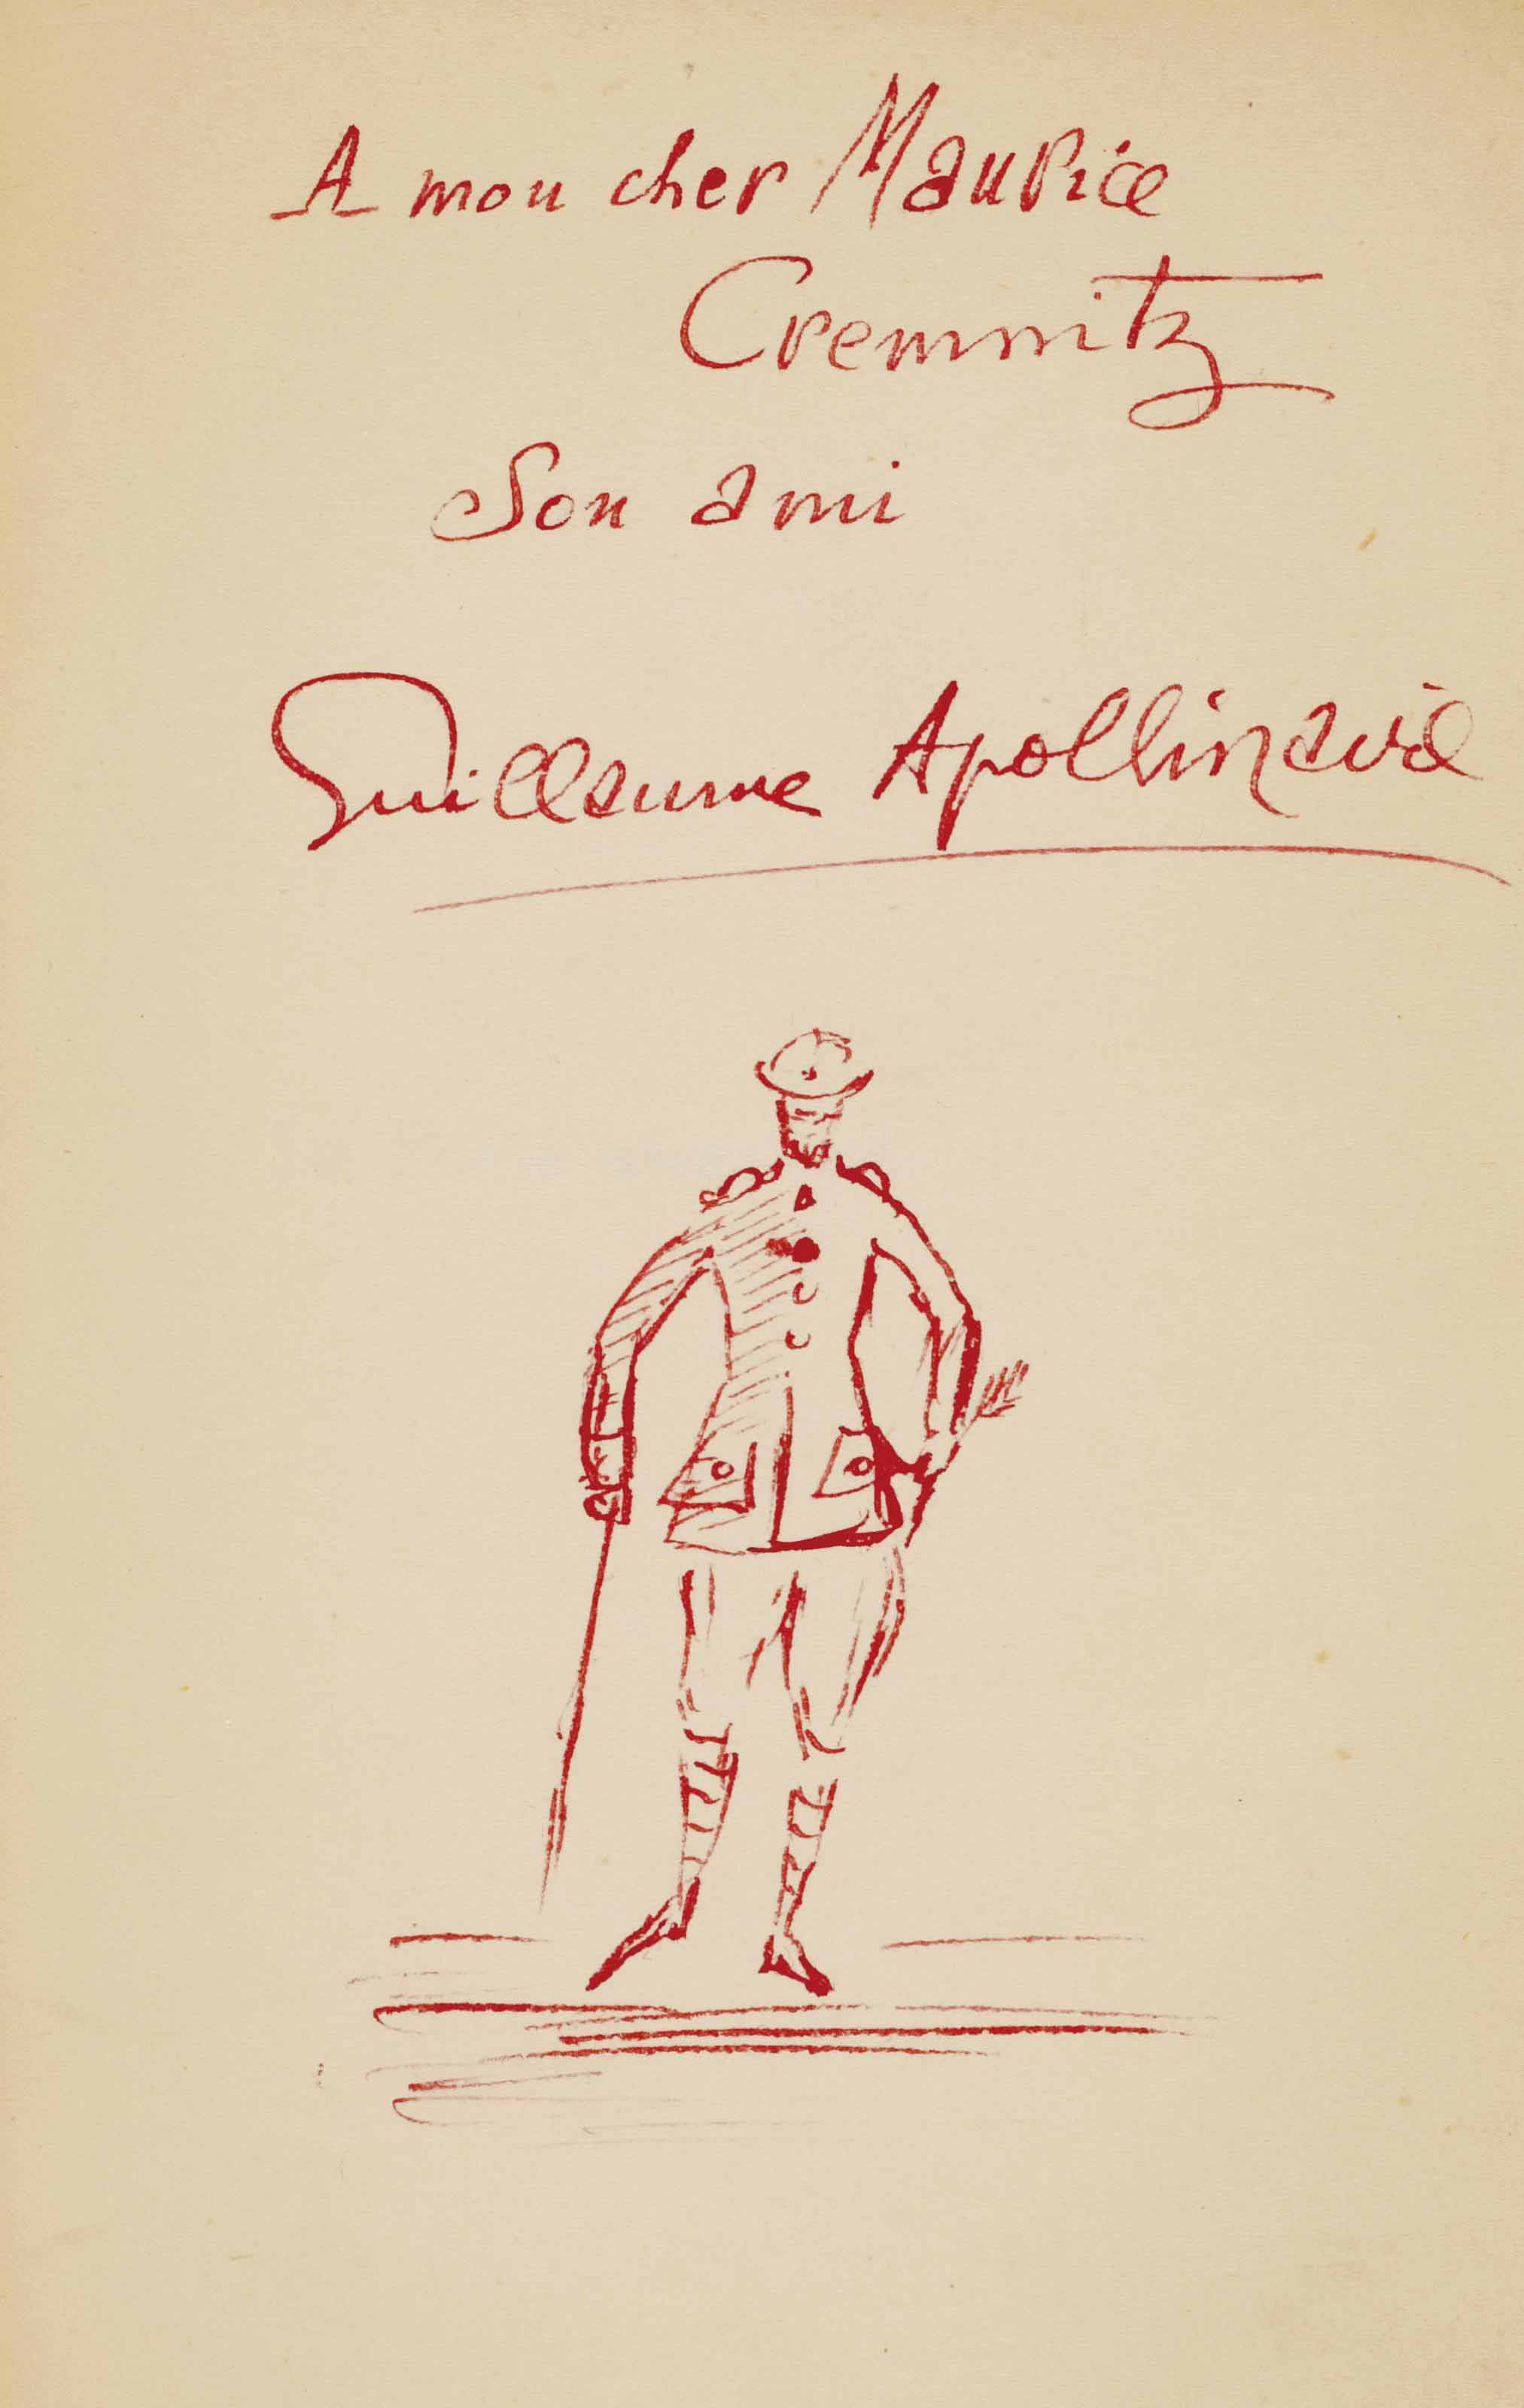 A mon cher Maurice
Cremnitz
Son ami
Guillaume Apollinaire